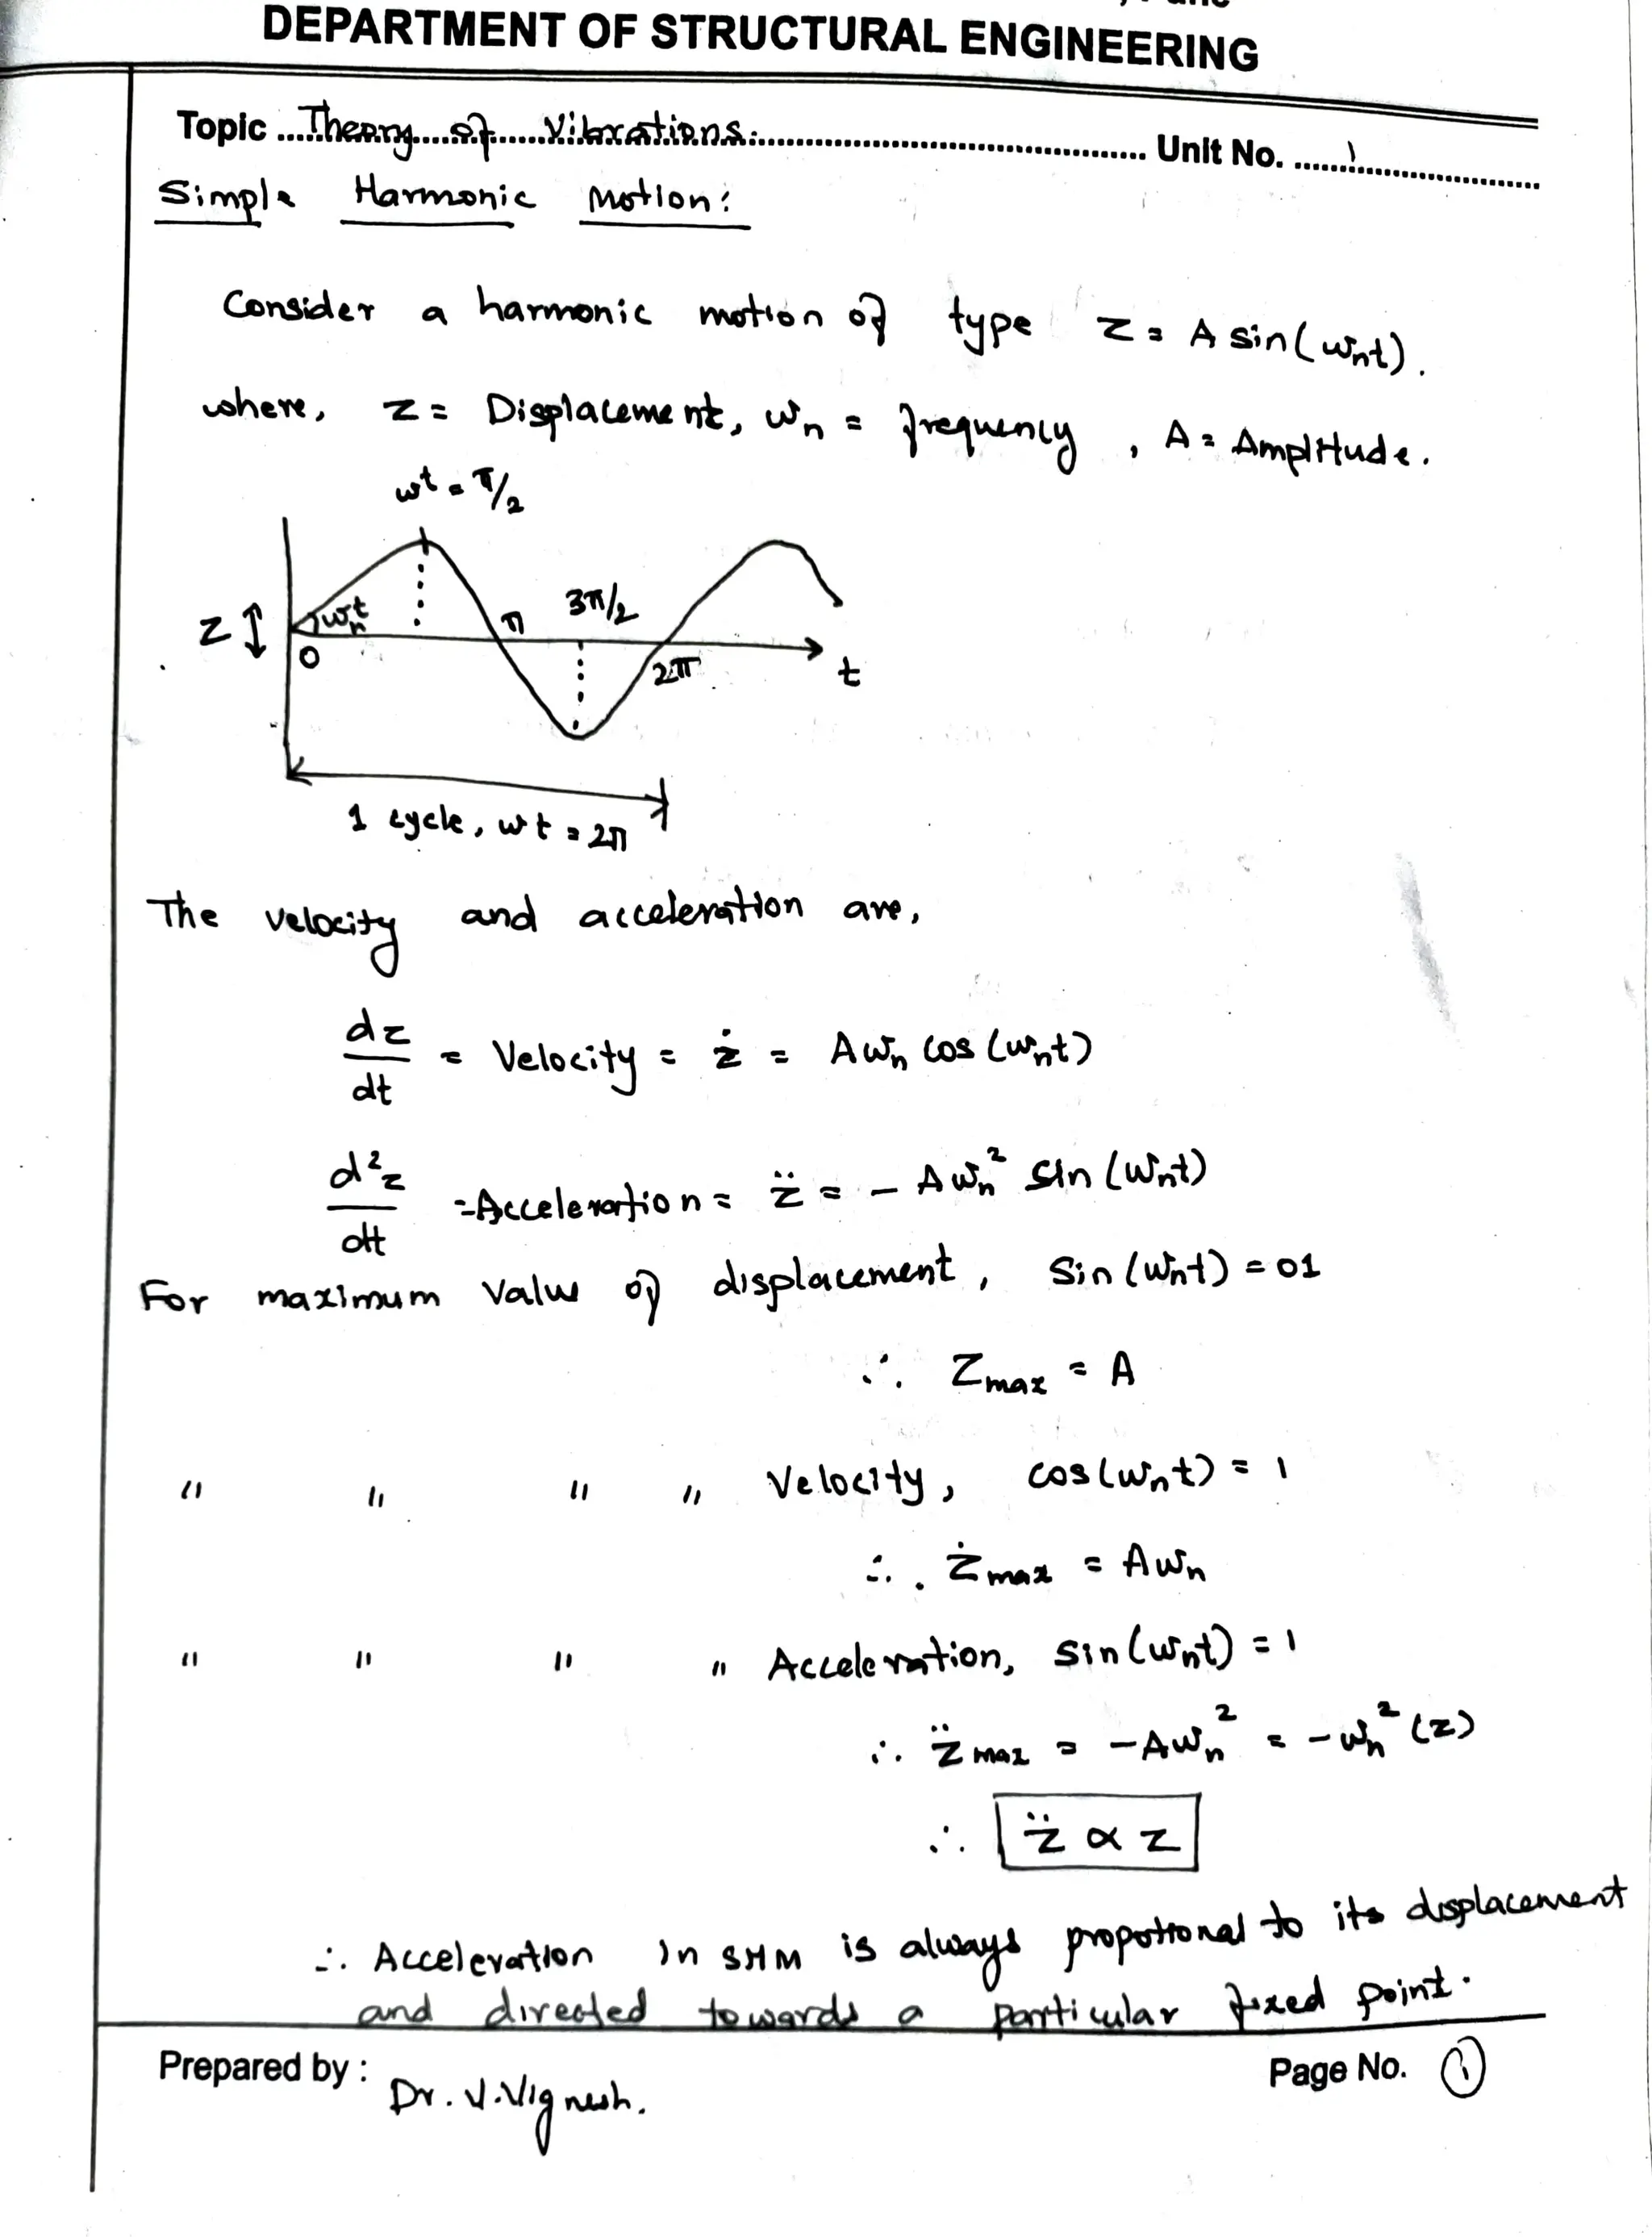 DEPARTMENT OF STRUCTURAL ENGINEERING
Topic ....Theory....of......Vibrations............ Unit No. ......1......
Simple Harmonic Motion:
Consider a harmonic motion of type z = A sin(ωnt).
where, z = Displacement, ωn = frequency, A = Amplitude.
ωt = π/2
z ↕ ωnt π 3π/2
0 2π t
1 cycle, ωt = 2π
The velocity and acceleration are,
dz/dt = Velocity = ż = Aωn cos(ωnt)
d²z/dt = Acceleration = z̈ = - Aωn² sin(ωnt)
For maximum value of displacement, sin(ωnt) = 01
∴ Zmax = A
" " " " Velocity, cos(ωnt) = 1
∴ żmax = Aωn
" " " " Acceleration, sin(ωnt) = 1
∴ z̈max = -Aωn² = -ωn²(z)
∴ z̈ ∝ z
∴ Acceleration in SHM is always proportional to its displacement
and directed towards a particular fixed point.
Prepared by : Dr. V.Vignesh. Page No. 1